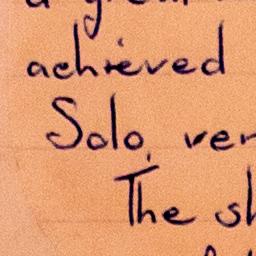 a
achieved
Solo, ver
The sh